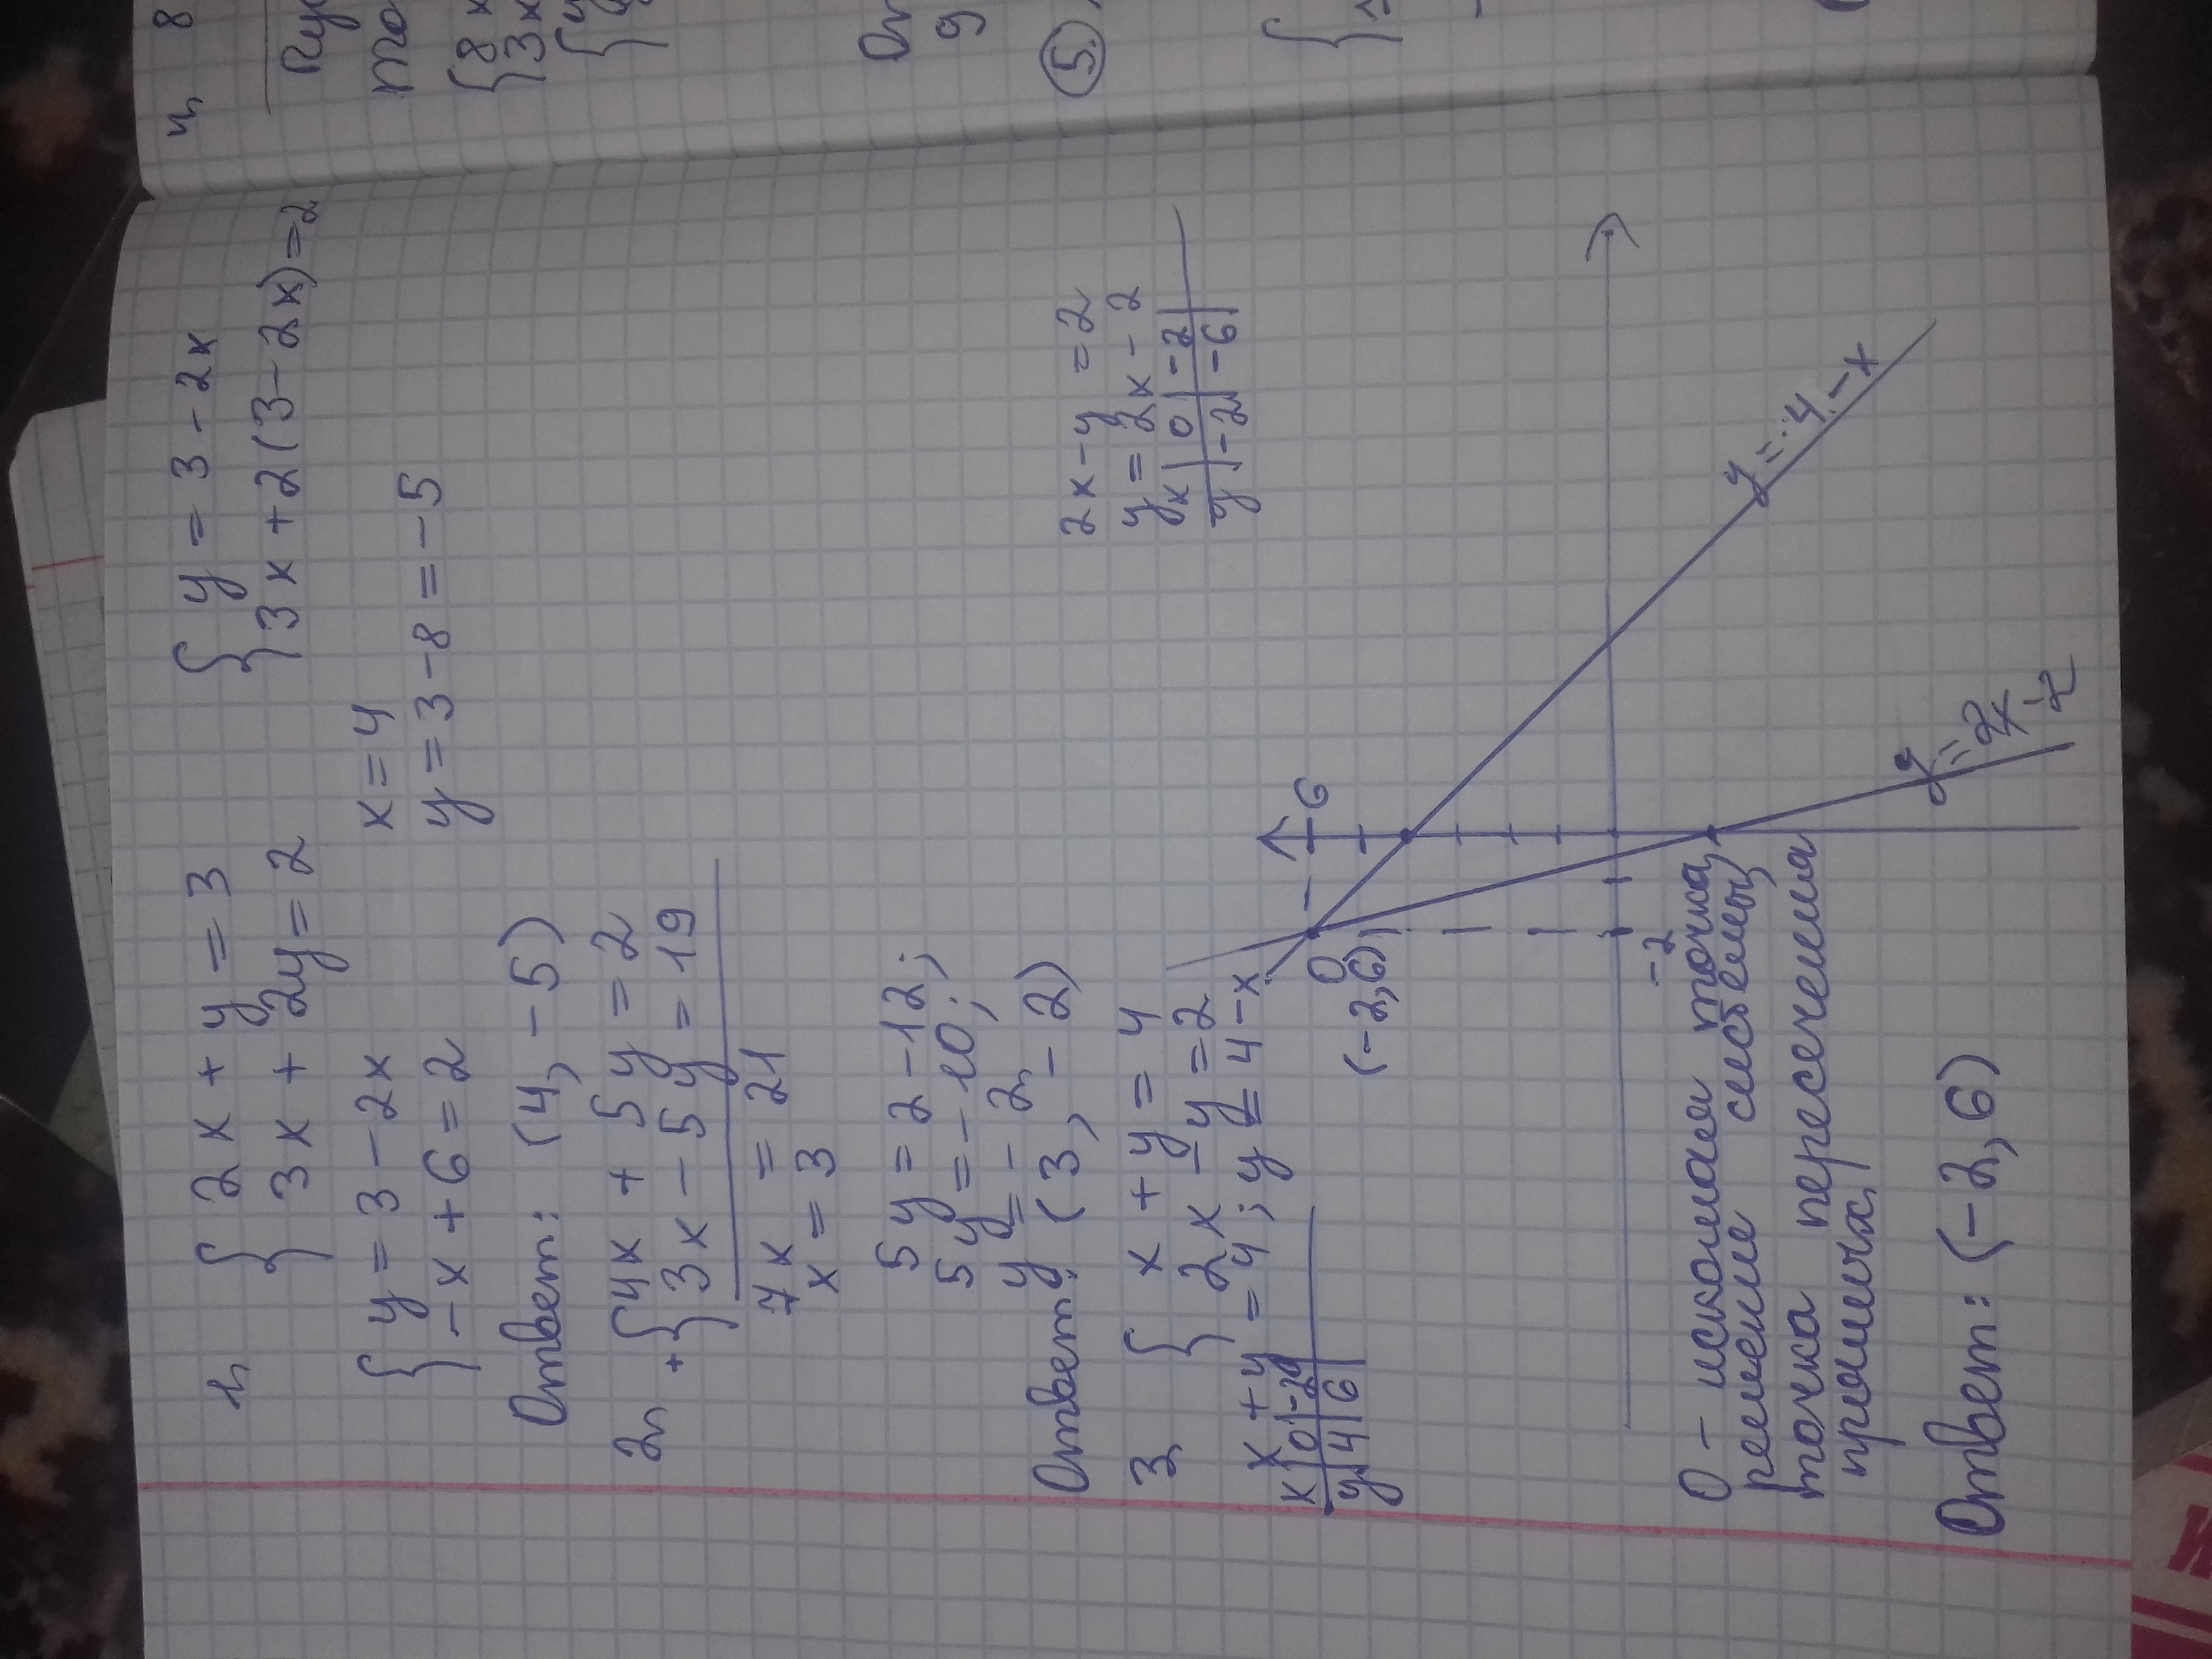 1. { 2x + y = 3
3x + 2y = 2
{ y = 3 - 2x
3x + 2(3 - 2x) = 2
{ y = 3 - 2x
-x + 6 = 2
x = 4
y = 3 - 8 = -5
Ответ: (4, -5)
2. + { 4x + 5y = 2
3x - 5y = 19
7x = 21
x = 3
5y = 2 - 12;
5y = -10;
y = -2
Ответ: (3, -2)
3 { x + y = 4
2x - y = 2
x + y = 4; y = 4 - x
x | 0 | -2
y | 4 | 6
2x - y = 2
y = 2x - 2
x | 0 | -2
y | -2 | -6
6
O
(-2, 6)
-2
y = 4 - x
y = 2x - 2
O - искомая точка,
решение системы
точка пересечения
прямых,
Ответ: (-2, 6)
4, 8
{ 8x
3x
{ y
9
5.
{